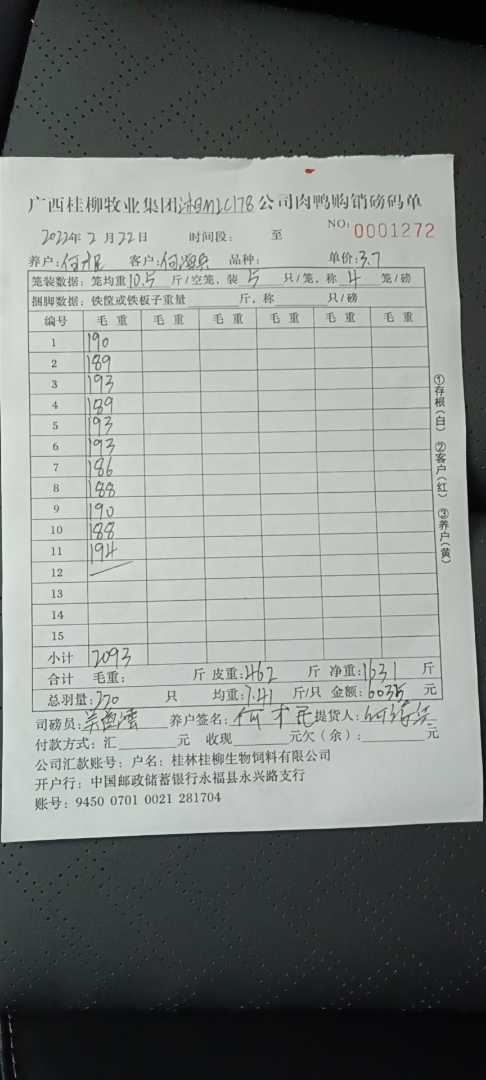 广西桂柳牧业集团 公司肉鸭购销磅码单
NO: 0001272
2022年2月22日 时间段: 至
养户: 何才民 客户: 品种: 单价: 3.7
笼装数据: 笼均重10.5斤/空笼, 装5只/笼, 称4笼/磅
捆脚数据: 铁筐或铁板子重量 斤, 称 只/磅
编号 毛重 毛重 毛重 毛重 毛重
1 190
2 189
3 193
4 189
5 193
6 193
7 186
8 188
9 190
10 188
11 194
12
13
14
15
小计 2093
合计 毛重: 斤 皮重: 462 斤 净重: 1631 斤
总羽量: 220 只 均重: 7.41 斤/只 金额: 6035 元
司磅员: 养户签名: 何才民 提货人:
付款方式: 汇 元 收现 元欠(余): 元
公司汇款账号: 户名: 桂林桂柳生物饲料有限公司
开户行: 中国邮政储蓄银行永福县永兴路支行
账号: 9450 0701 0021 281704
①存根(白) ②客户(红) ③养户(黄)